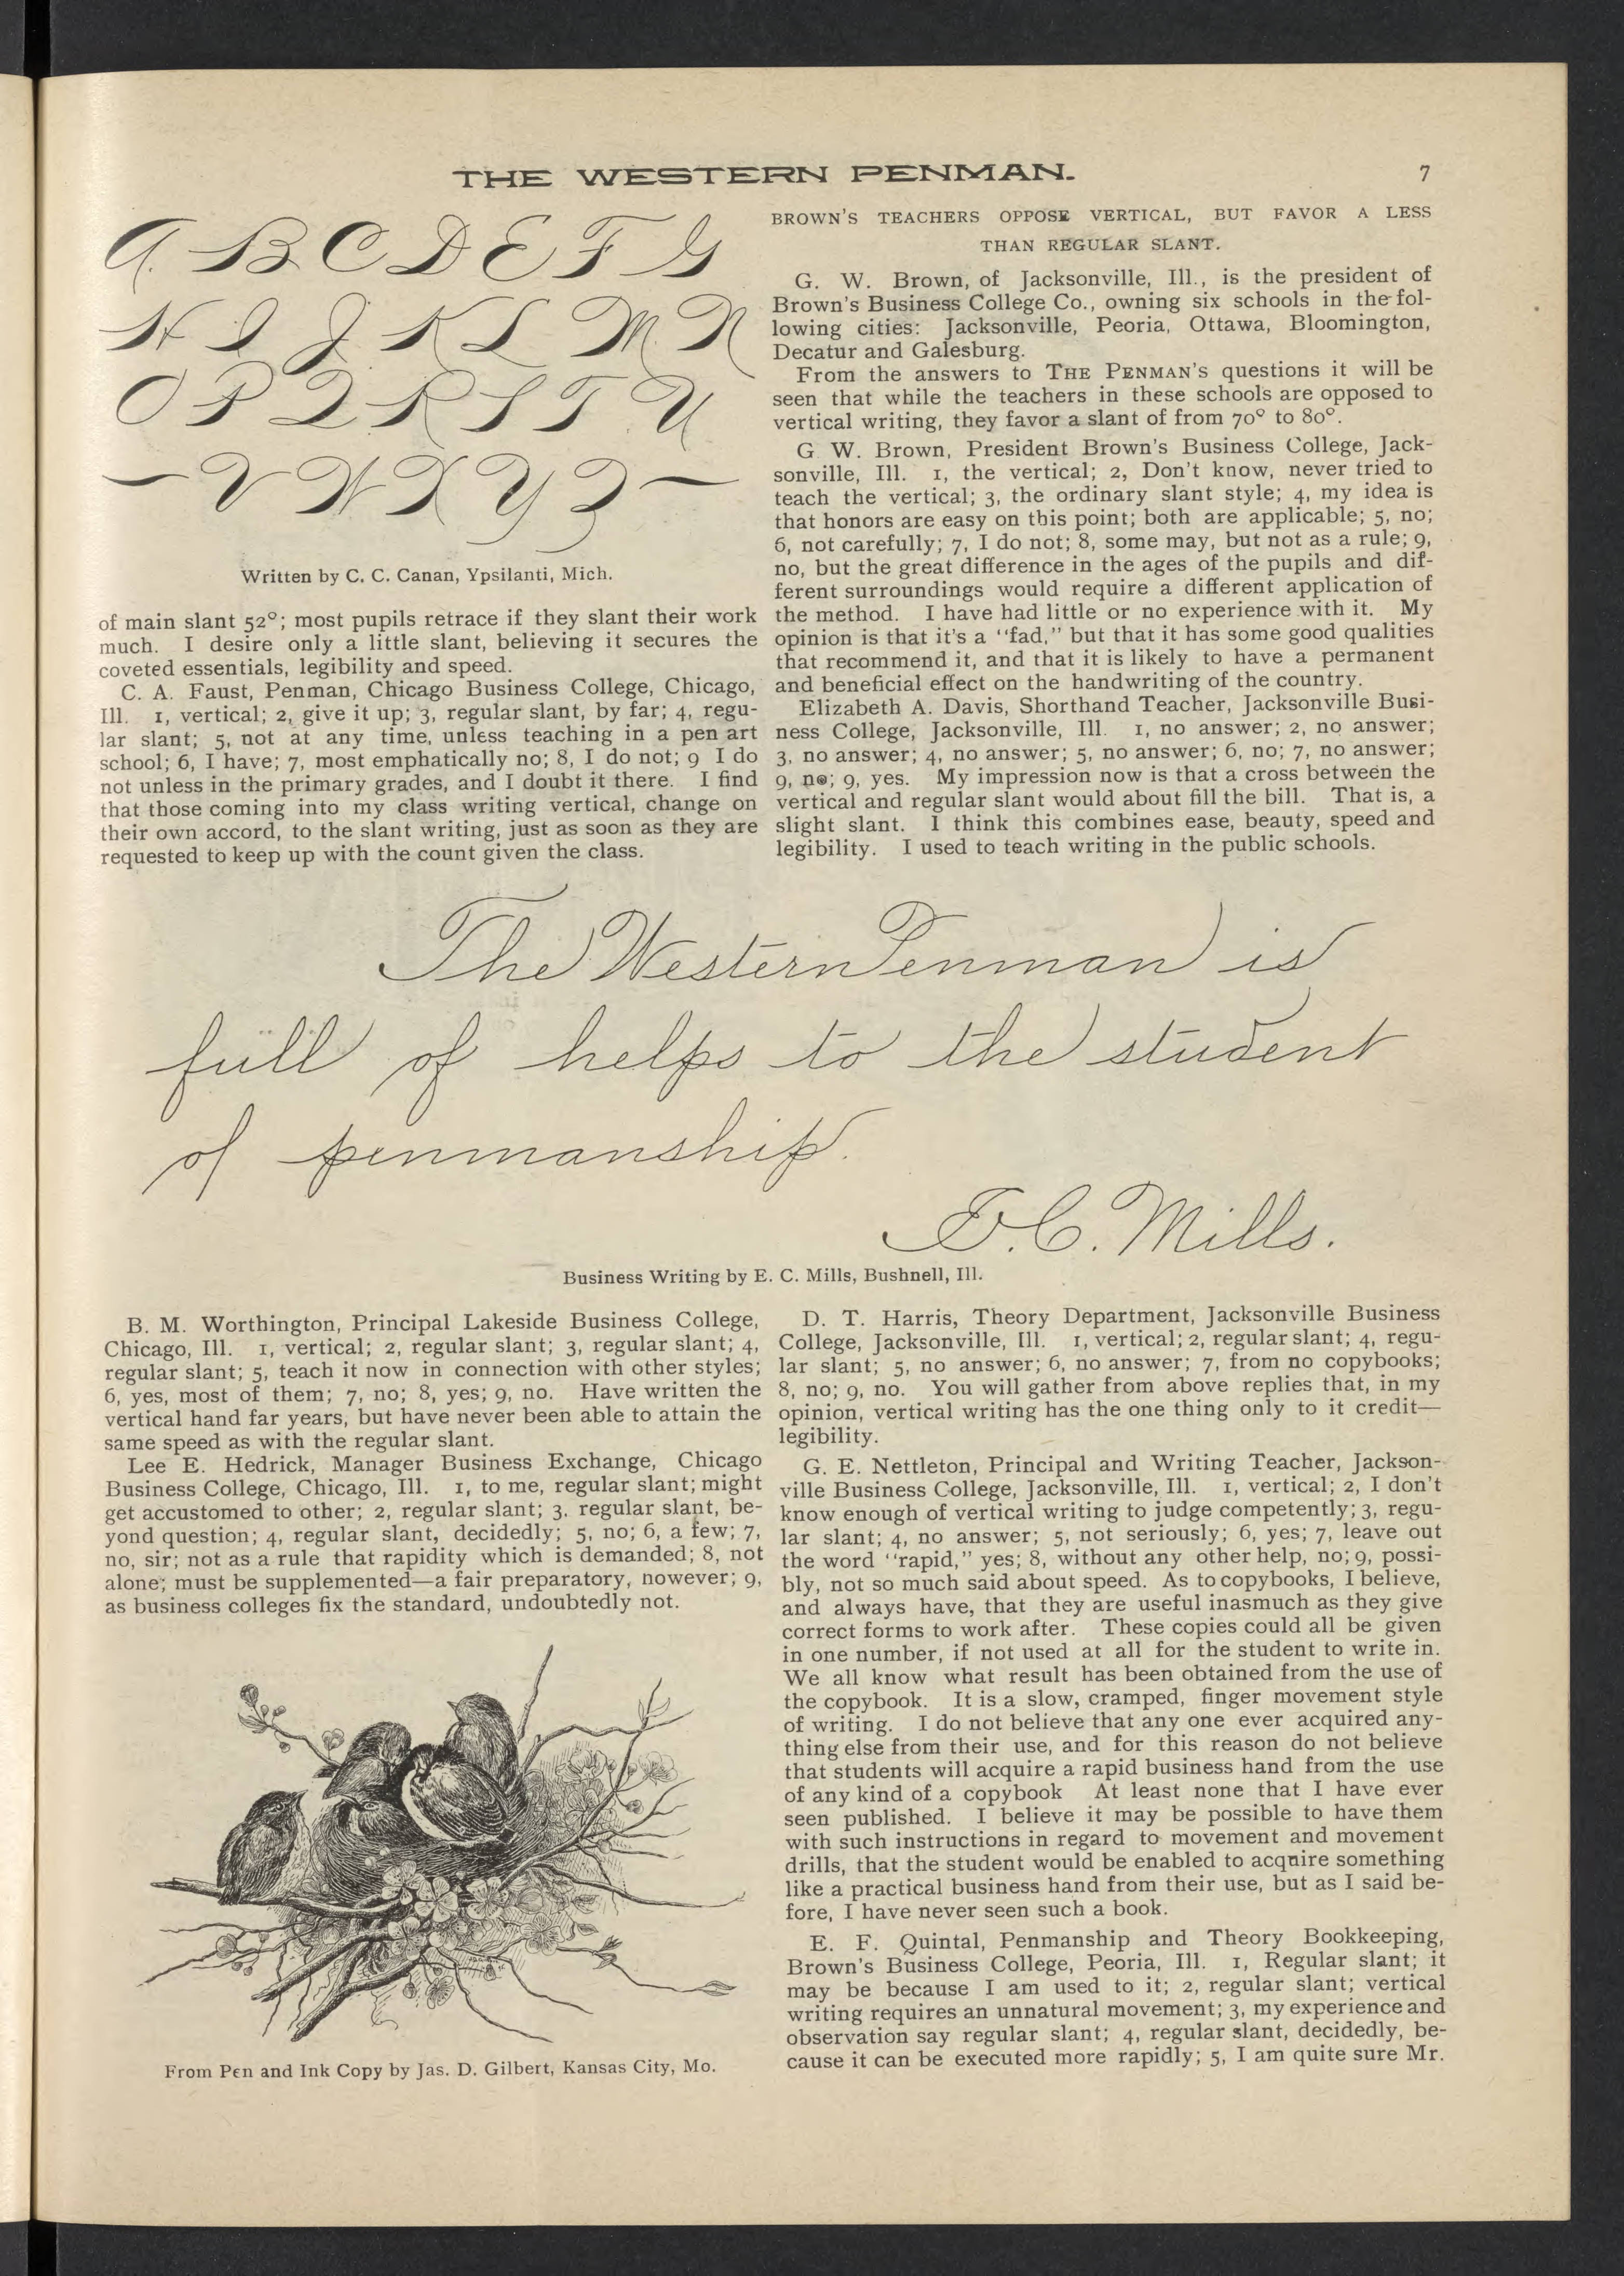 THE WESTERN PENMAN.
7
A B C D E F G
H I J K L M N
O P Q R S T U
V W X Y Z
Written by C. C. Canan, Ypsilanti, Mich.
of main slant 52°; most pupils retrace if they slant their work
much. I desire only a little slant, believing it secures the
coveted essentials, legibility and speed.
C. A. Faust, Penman, Chicago Business College, Chicago,
Ill. 1, vertical; 2, give it up; 3, regular slant, by far; 4, regu-
lar slant; 5, not at any time, unless teaching in a pen art
school; 6, I have; 7, most emphatically no; 8, I do not; 9 I do
not unless in the primary grades, and I doubt it there. I find
that those coming into my class writing vertical, change on
their own accord, to the slant writing, just as soon as they are
requested to keep up with the count given the class.
BROWN'S TEACHERS OPPOSE VERTICAL, BUT FAVOR A LESS
THAN REGULAR SLANT.
G. W. Brown, of Jacksonville, Ill., is the president of
Brown's Business College Co., owning six schools in the fol-
lowing cities: Jacksonville, Peoria, Ottawa, Bloomington,
Decatur and Galesburg.
From the answers to THE PENMAN'S questions it will be
seen that while the teachers in these schools are opposed to
vertical writing, they favor a slant of from 70° to 80°.
G W. Brown, President Brown's Business College, Jack-
sonville, Ill. 1, the vertical; 2, Don't know, never tried to
teach the vertical; 3, the ordinary slant style; 4, my idea is
that honors are easy on this point; both are applicable; 5, no;
6, not carefully; 7, I do not; 8, some may, but not as a rule; 9,
no, but the great difference in the ages of the pupils and dif-
ferent surroundings would require a different application of
the method. I have had little or no experience with it. My
opinion is that it's a "fad," but that it has some good qualities
that recommend it, and that it is likely to have a permanent
and beneficial effect on the handwriting of the country.
Elizabeth A. Davis, Shorthand Teacher, Jacksonville Busi-
ness College, Jacksonville, Ill. 1, no answer; 2, no answer;
3, no answer; 4, no answer; 5, no answer; 6, no; 7, no answer;
9, no; 9, yes. My impression now is that a cross between the
vertical and regular slant would about fill the bill. That is, a
slight slant. I think this combines ease, beauty, speed and
legibility. I used to teach writing in the public schools.
The Western Penman is
full of helps to the student
of penmanship.
E. C. Mills.
Business Writing by E. C. Mills, Bushnell, Ill.
B. M. Worthington, Principal Lakeside Business College,
Chicago, Ill. 1, vertical; 2, regular slant; 3, regular slant; 4,
regular slant; 5, teach it now in connection with other styles;
6, yes, most of them; 7, no; 8, yes; 9, no. Have written the
vertical hand far years, but have never been able to attain the
same speed as with the regular slant.
Lee E. Hedrick, Manager Business Exchange, Chicago
Business College, Chicago, Ill. 1, to me, regular slant; might
get accustomed to other; 2, regular slant; 3. regular slant, be-
yond question; 4, regular slant, decidedly; 5, no; 6, a few; 7,
no, sir; not as a rule that rapidity which is demanded; 8, not
alone; must be supplemented—a fair preparatory, nowever; 9,
as business colleges fix the standard, undoubtedly not.
From Pen and Ink Copy by Jas. D. Gilbert, Kansas City, Mo.
D. T. Harris, Theory Department, Jacksonville Business
College, Jacksonville, Ill. 1, vertical; 2, regular slant; 4, regu-
lar slant; 5, no answer; 6, no answer; 7, from no copybooks;
8, no; 9, no. You will gather from above replies that, in my
opinion, vertical writing has the one thing only to it credit—
legibility.
G. E. Nettleton, Principal and Writing Teacher, Jackson-
ville Business College, Jacksonville, Ill. 1, vertical; 2, I don't
know enough of vertical writing to judge competently; 3, regu-
lar slant; 4, no answer; 5, not seriously; 6, yes; 7, leave out
the word "rapid," yes; 8, without any other help, no; 9, possi-
bly, not so much said about speed. As to copybooks, I believe,
and always have, that they are useful inasmuch as they give
correct forms to work after. These copies could all be given
in one number, if not used at all for the student to write in.
We all know what result has been obtained from the use of
the copybook. It is a slow, cramped, finger movement style
of writing. I do not believe that any one ever acquired any-
thing else from their use, and for this reason do not believe
that students will acquire a rapid business hand from the use
of any kind of a copybook At least none that I have ever
seen published. I believe it may be possible to have them
with such instructions in regard to movement and movement
drills, that the student would be enabled to acqnire something
like a practical business hand from their use, but as I said be-
fore, I have never seen such a book.
E. F. Quintal, Penmanship and Theory Bookkeeping,
Brown's Business College, Peoria, Ill. 1, Regular slant; it
may be because I am used to it; 2, regular slant; vertical
writing requires an unnatural movement; 3, my experience and
observation say regular slant; 4, regular slant, decidedly, be-
cause it can be executed more rapidly; 5, I am quite sure Mr.